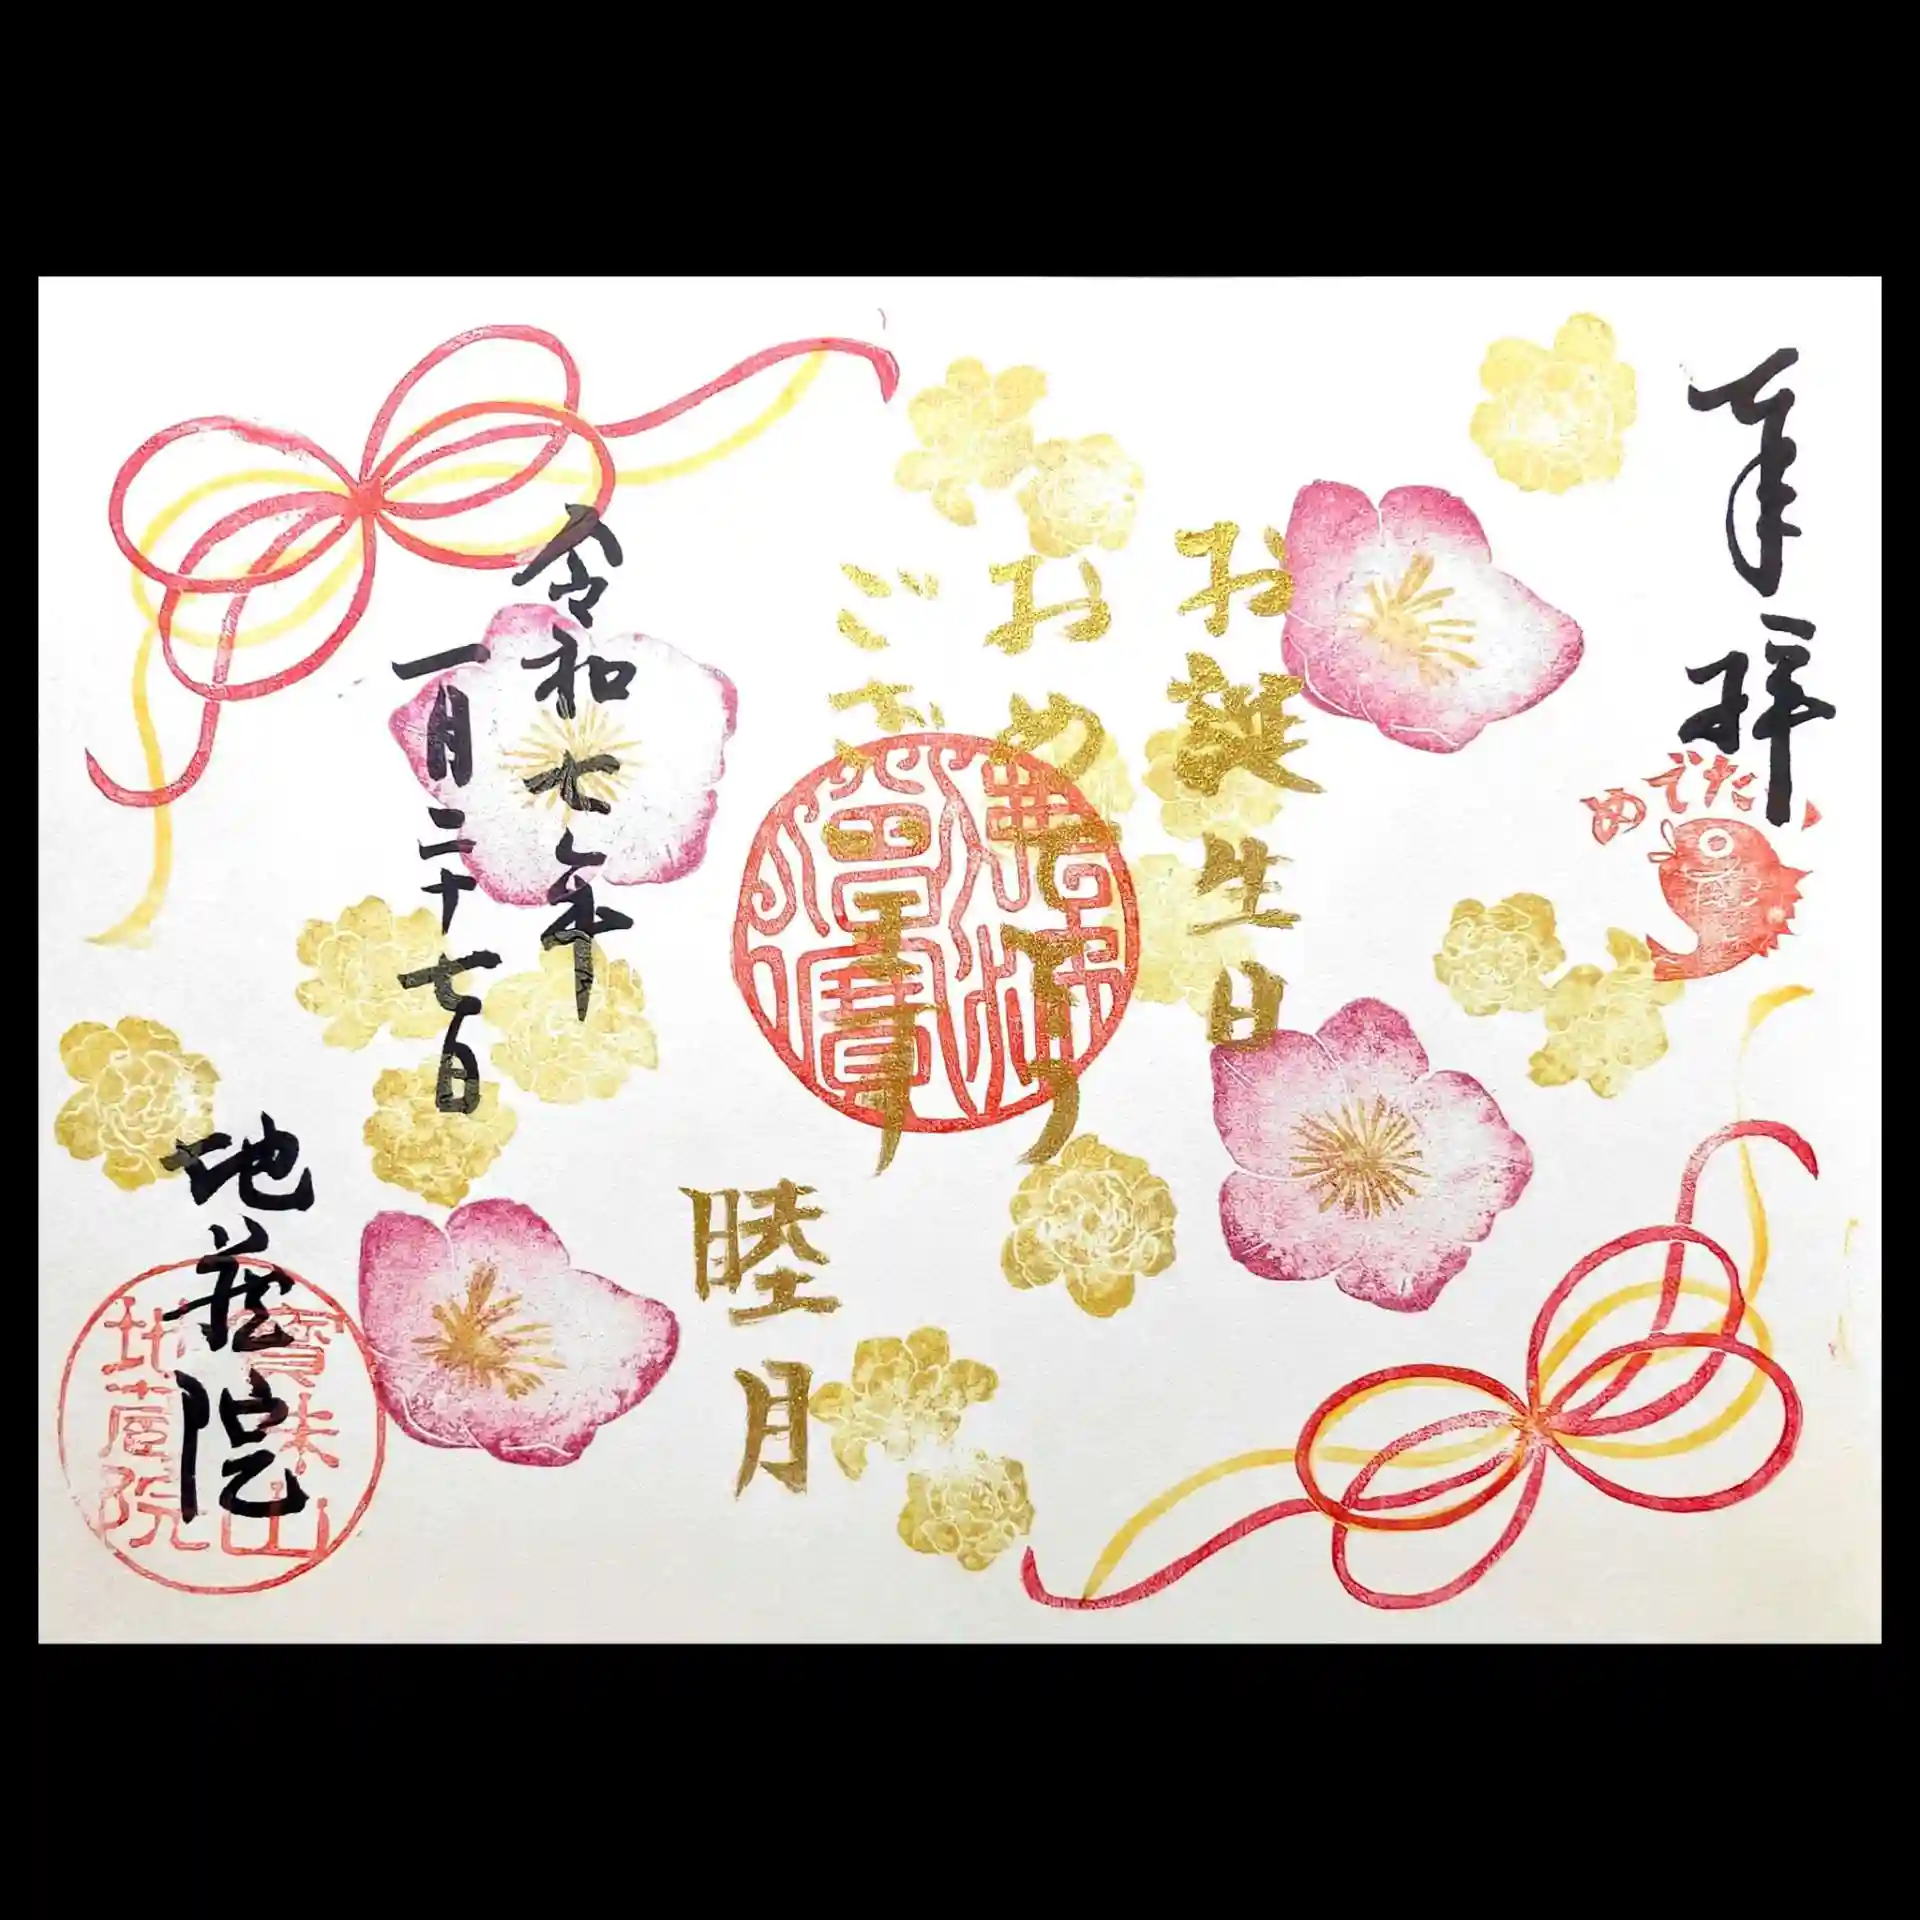 奉拝
めでたい
お誕生日
おめでとう
ございます
睦月
令和七年
一月二十七日
地蔵院
地蔵院